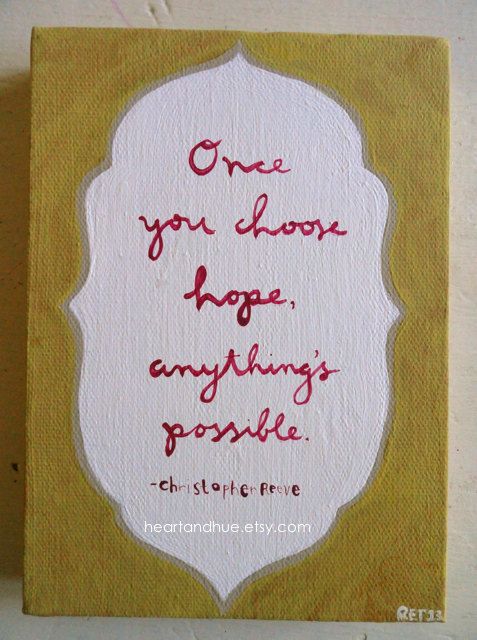 Once
you choose
hope,
anything's
possible.
-Christopher Reeve
heartandhue.etsy.com
RET13